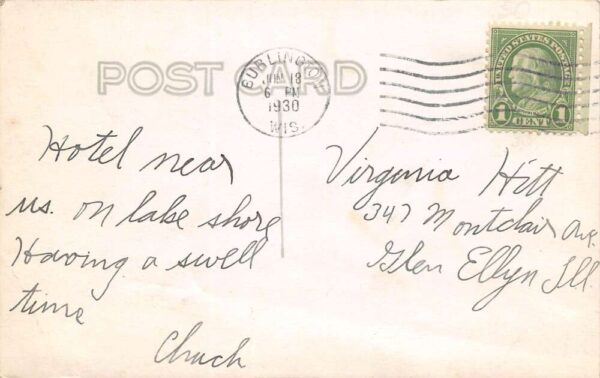 POST CARD
BURLINGTON
JUN 18
6 PM
1930
WIS.
UNITED STATES POSTAGE
1 CENT 1
Hotel near
us. on lake shore
Having a swell
time
Chuck
Virginia Hitt
347 Montclair Ave.
Glen Ellyn Ill.